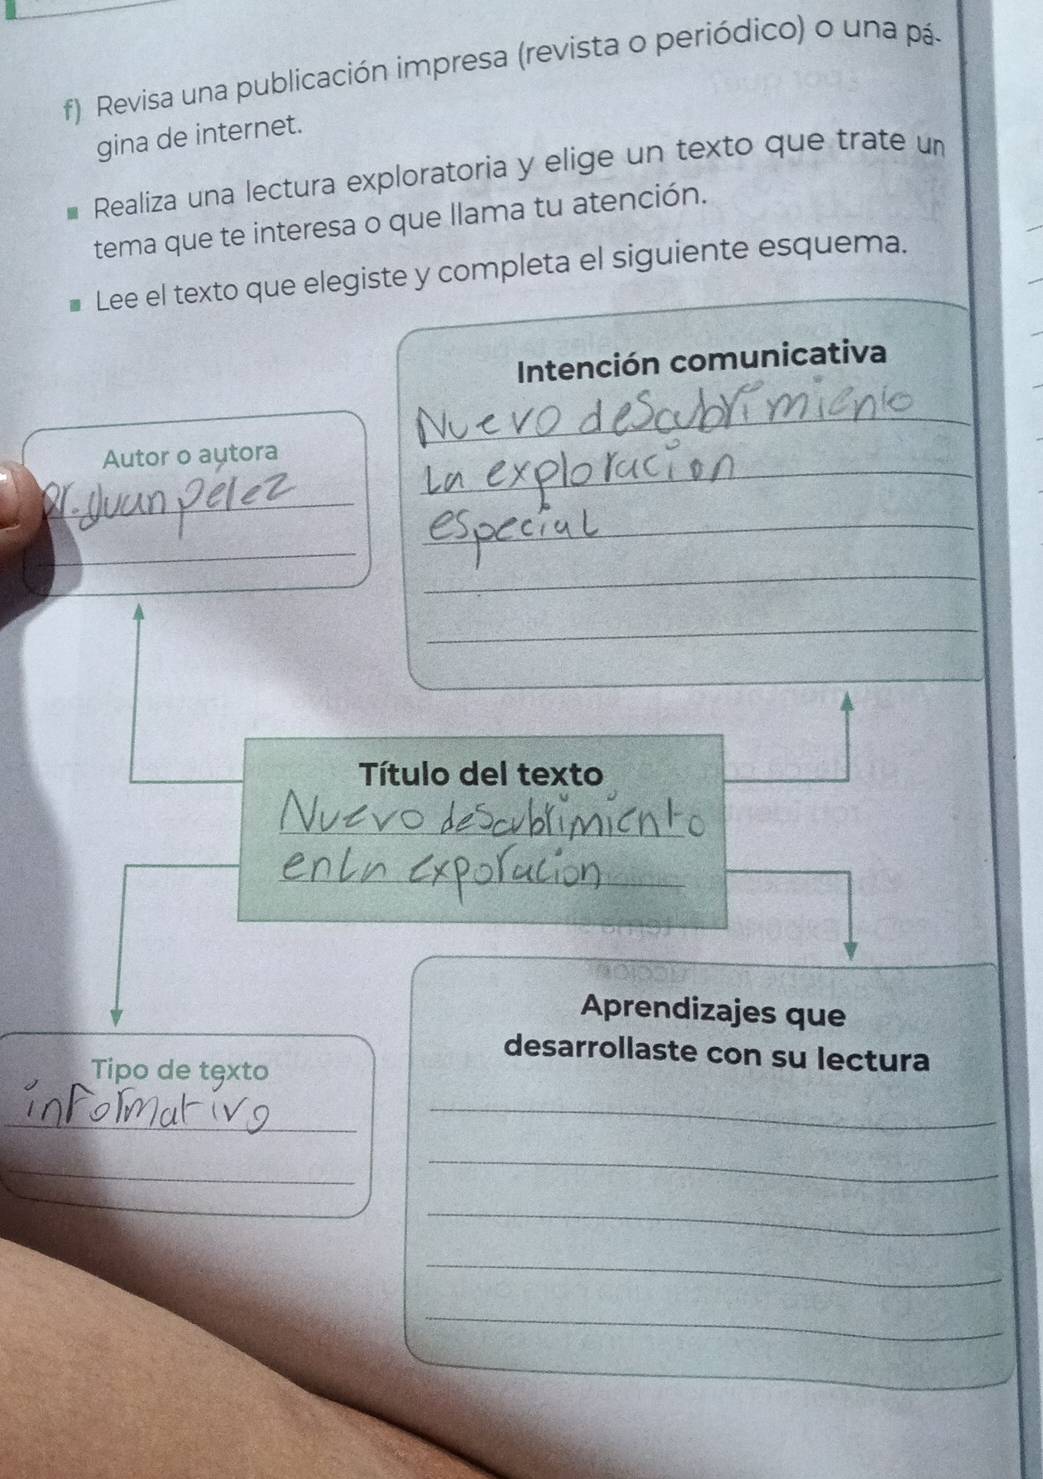 f) Revisa una publicación impresa (revista o periódico) o una pá-
gina de internet.
▪ Realiza una lectura exploratoria y elige un texto que trate un
tema que te interesa o que llama tu atención.
▪ Lee el texto que elegiste y completa el siguiente esquema.
Intención comunicativa
Nuevo descubrimiento
La exploracion
especial
Autor o autora
Dr. Juan perez
Título del texto
Nuevo descubrimiento
en La exporacion
Aprendizajes que
desarrollaste con su lectura
Tipo de texto
informativo